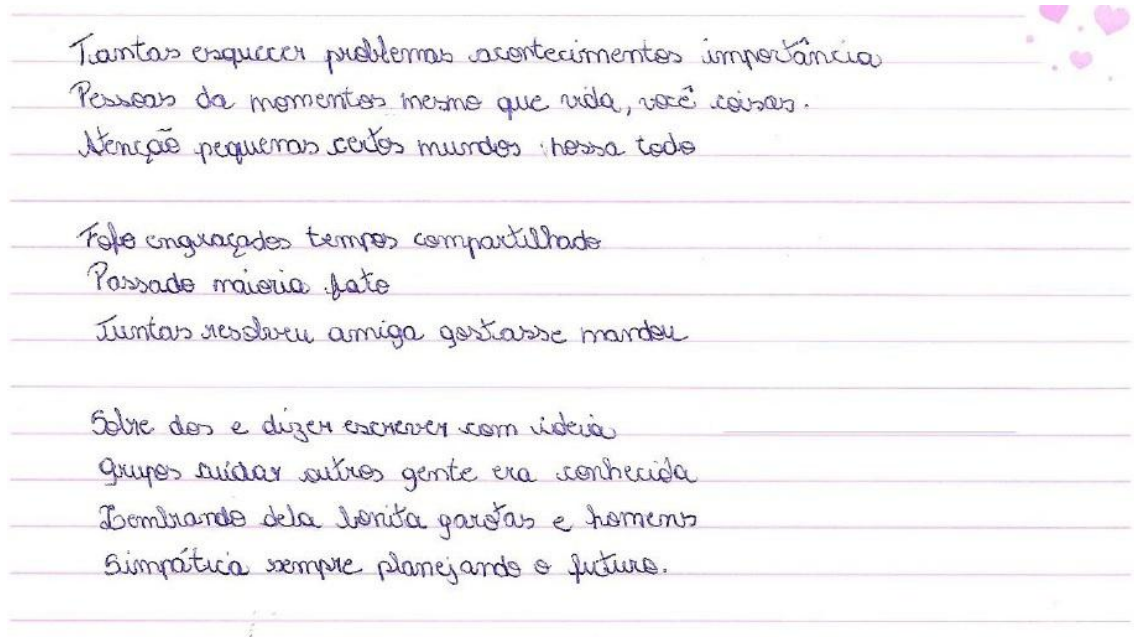 Tantas esquecer problemas acontecimentos importância
Pessoas da momentos mesmo que vida, você coisas.
Atenção pequenas certos mundos nossa todo
Fofo engraçados tempos compartilhado
Passado maioria fato
Juntas resolveu amiga gostasse mandou
Sobre dos e dizer escrever com ideia
Grupos cuidar outros gente era conhecida
Lembrando dela bonita garotas e homens
Simpática sempre planejando o futuro.